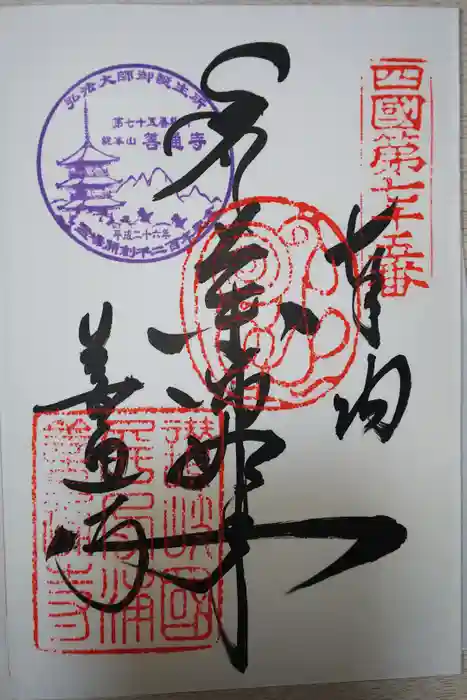 四國第七十五番
奉納
薬師如来
善通寺
弘法大師御誕生所
第七十五番
総本山 善通寺
平成二十六年
霊場開創千二百年
讃岐國
屏風浦
善通寺